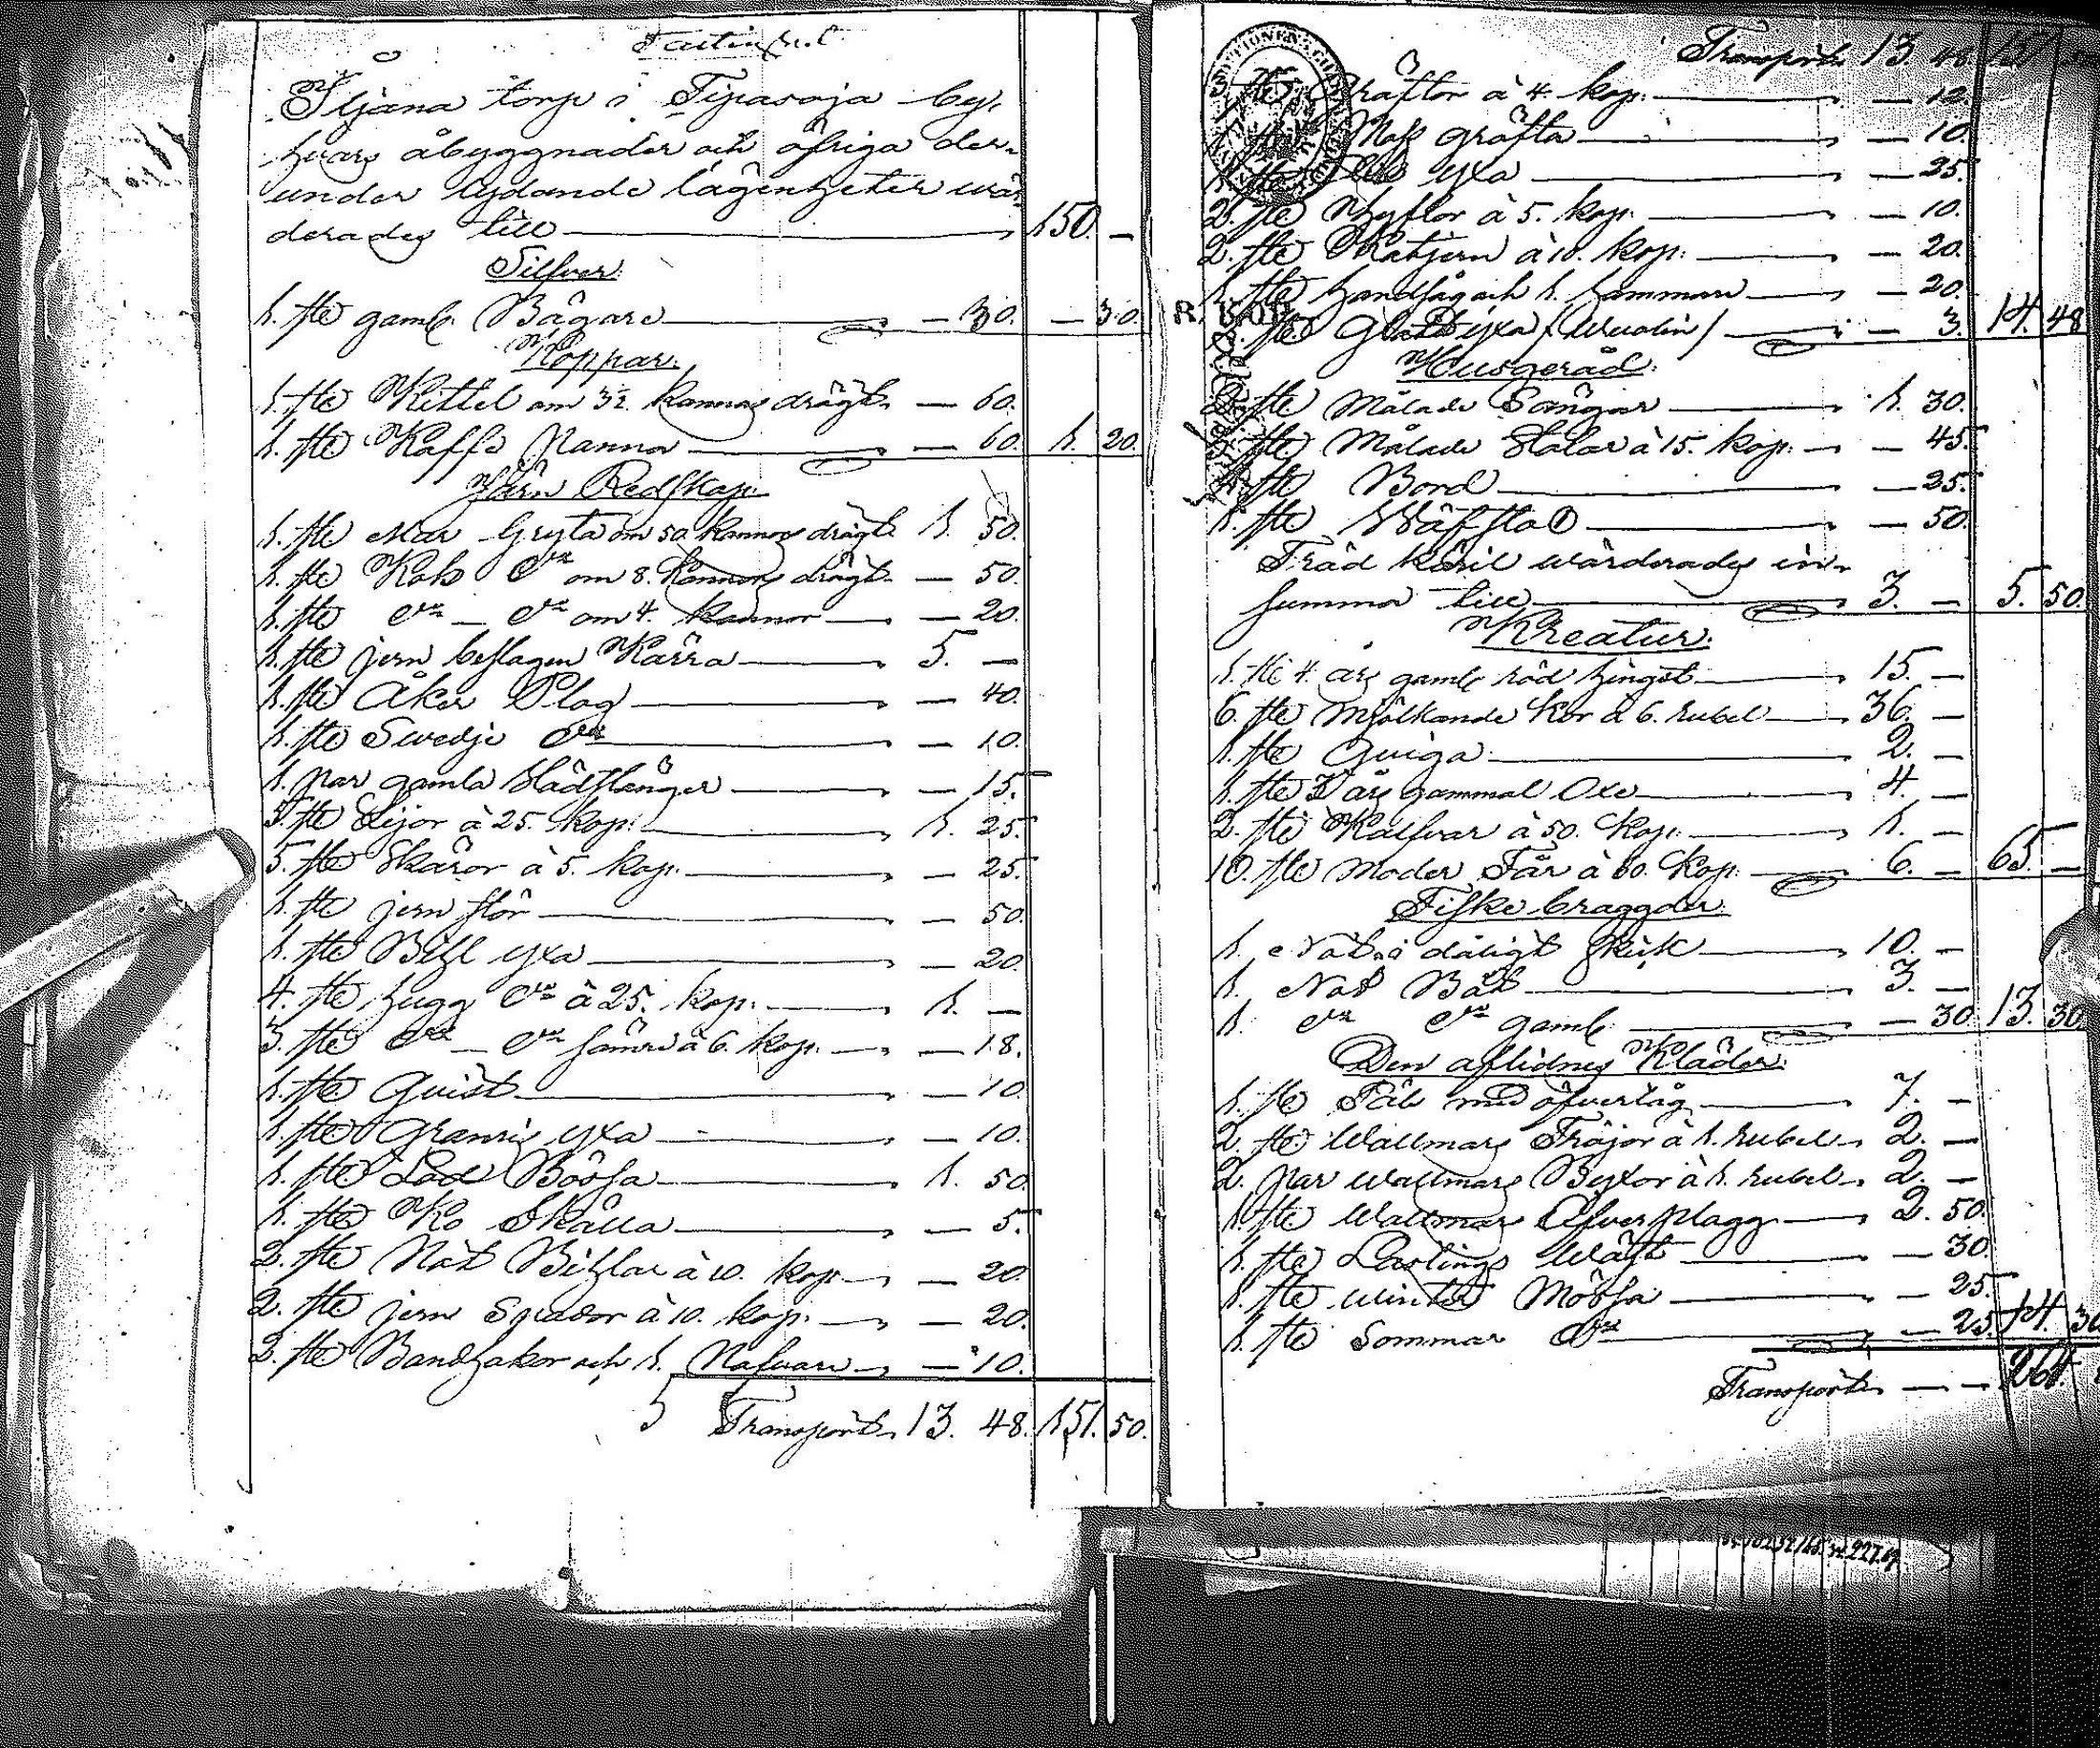 Fastighet
Iljana torp i Tipasoja by,
hvars åbyggnader och öfriga der-
under lydande lägenheter vär-
derades till 150. —
Silfver.
1. ste gaml. Bägare — 30. — 30.
Koppar.
1. ste Kittel om 32. kannas drägt. — 60.
1. ste Kaffe Panna — 60. 1. 20.
Järn Redskap.
1. ste Mur Gryta om 50. kannors drägt. 1. 50.
1. ste Kok d:o om 8. kannors drägt. — 50.
1. ste d:o — d:o om 4. kannor — 20.
1. ste jern beslagen Kärra 5. —
1. ste Åker Plog — 40.
1. ste Swedje d:o — 10.
1. par gamla Slädstänger — 15.
5. ste Lijor à 25. kop. 1. 25.
5. ste Skäror à 5. kop. — 25.
1. ste jern stör — 50.
1. ste Bihl yxa — 20.
4. ste hugg d:o à 25. kop. 1. —
3. ste d:o — d:o sämre à 6. kop. — 18.
1. ste Quist — 10.
1. ste Granris yxa — 10.
1. ste Lod Bössa 1. 50.
1. ste Ko Skälla — 5.
2. ste Nöt à 10. kop. — 20.
2. ste jern Spador à 10. kop. — 20.
2. ste Bandhakor och 1. Nafvare — 10.
Transport 13. 48. 151. 50.
Transport 13. 48. 151. 50
Gräftor à 4. kop. — 12.
gräfta — 10.
yxa — 25.
2. ste Hyflor à 5. kop. — 10.
2. ste à 10. kop. — 20.
1. ste handsåg och 1. hammare — 20.
yxa (Wuolin) — 3. 14. 48
Husgeråd.
2. ste Målade Sängar 1. 30.
3. ste Målade Stolar à 15. kop. — 45.
1. ste Bord — 25.
1. ste Wäfstol — 50.
Träd käril wärderades in
summa till 3. — 5. 50.
Kreatur.
1. ste 4. års gaml. röd hingst 15. —
6. ste Mjölkande Kor à 6. rubel 36. —
1. ste Quiga 2. —
1. ste 3 års gammal Oxe 4. —
2. ste Kalfvar à 50. kop. 1. —
10. ste Moder Får à 60. kop. 6. — 65. —
Fiske braggder.
1. Not i dåligt skick 10. —
1. Not Båt 3. —
1. d:o d:o gaml. — 30. 13. 30.
Den aflidnes Kläder.
1. ste Päls med öfvertåg 7. —
2. ste Wallmars Tröjor à 1. rubel 2. —
2. par Wallmars Byxor à 1. rubel 2. —
1. ste Wallmars Öfverplagg 2. 50.
1. ste Lastings Wäst — 30.
1. ste winter Mössa — 25.
1. ste Sommar d:o — 25. 14. 30
Transport — — 264.